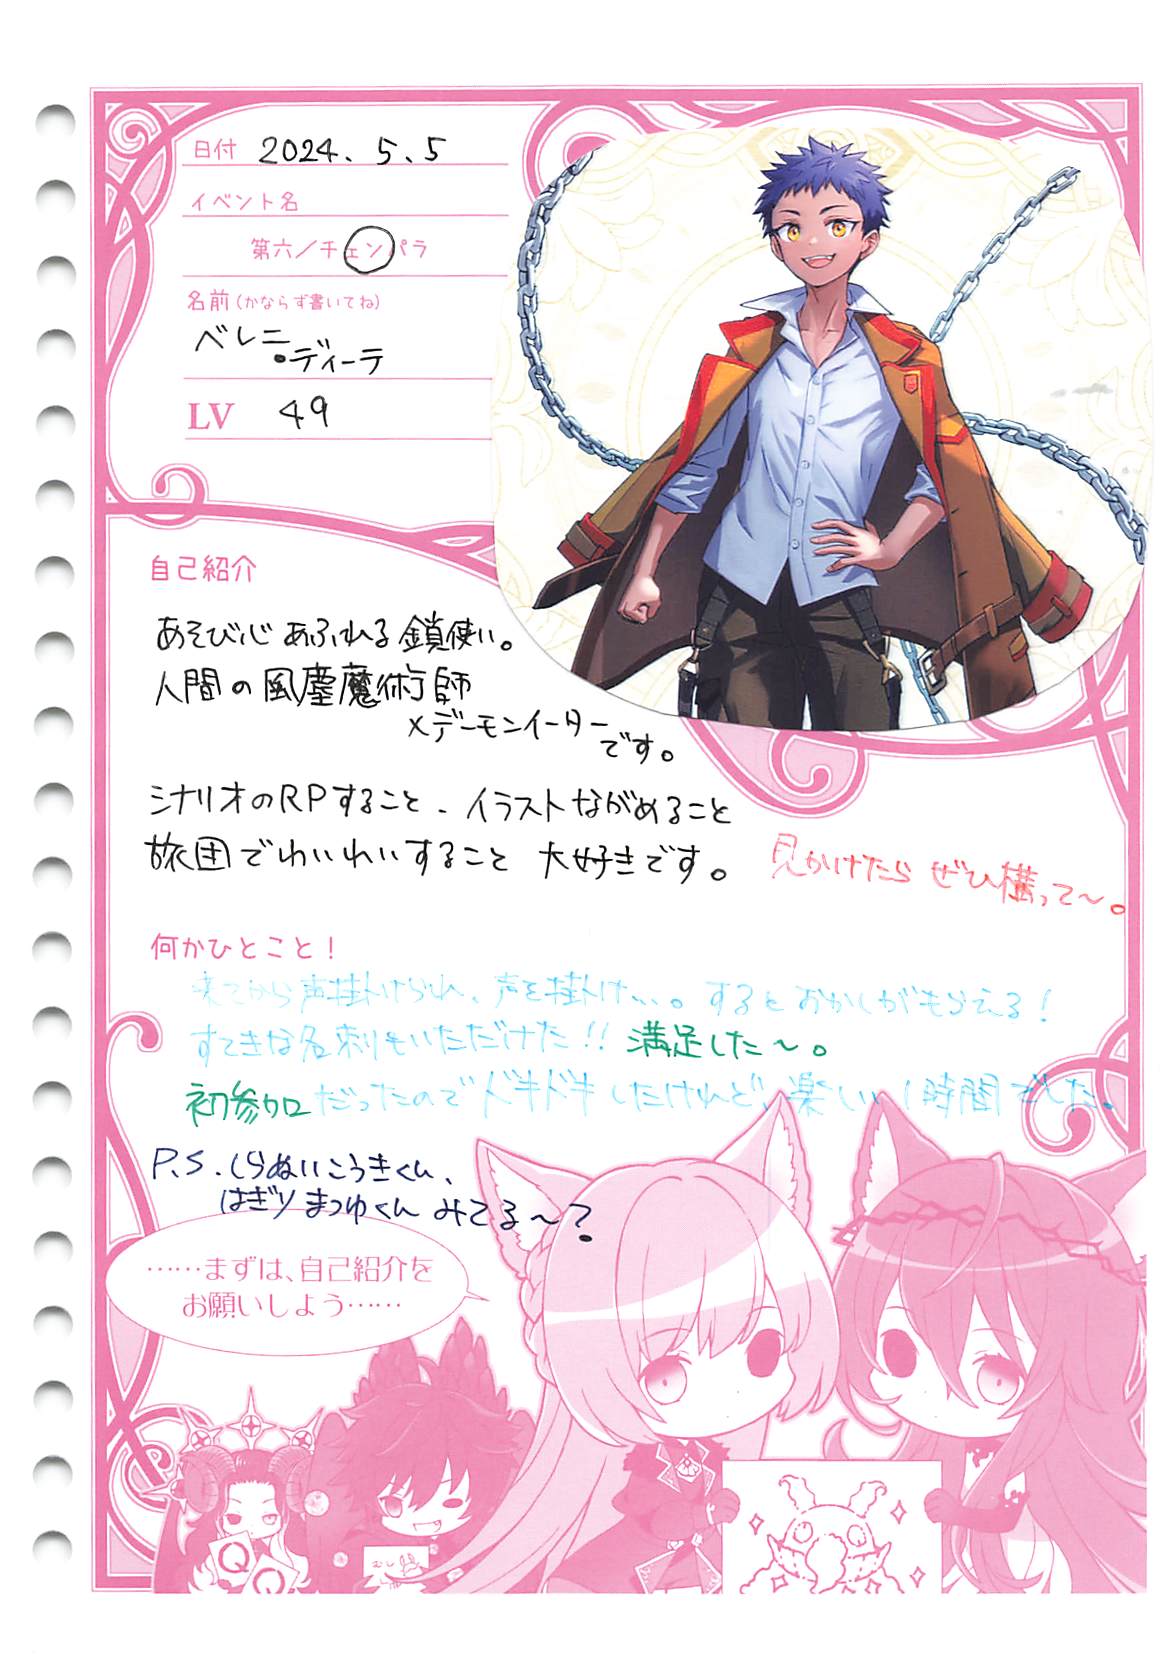 日付 2024.5.5
イベント名
第六／チェンパラ
名前(かならず書いてね)
ベレニ
・ディーテ
LV 49
自己紹介
あそび心あふれる鎖使い。
人間の風塵魔術師
×デーモンイーター
です。
シナリオのRPすること、イラストながめること
旅団でわいわいすること 大好きです。
見かけたら ぜひ構って〜。
何かひとこと!
来てから声掛けられ、声を掛け…。するとおかしがもらえる!
すてきな名刺もいただけた!! 満足した〜。
初参加だったのでドキドキしたけれど、楽しい1時間でした。
P.S.しらぬいこうきくん、
はぎりまつゆくん みてる〜?
……まずは、自己紹介を
お願いしよう……
Q
Q